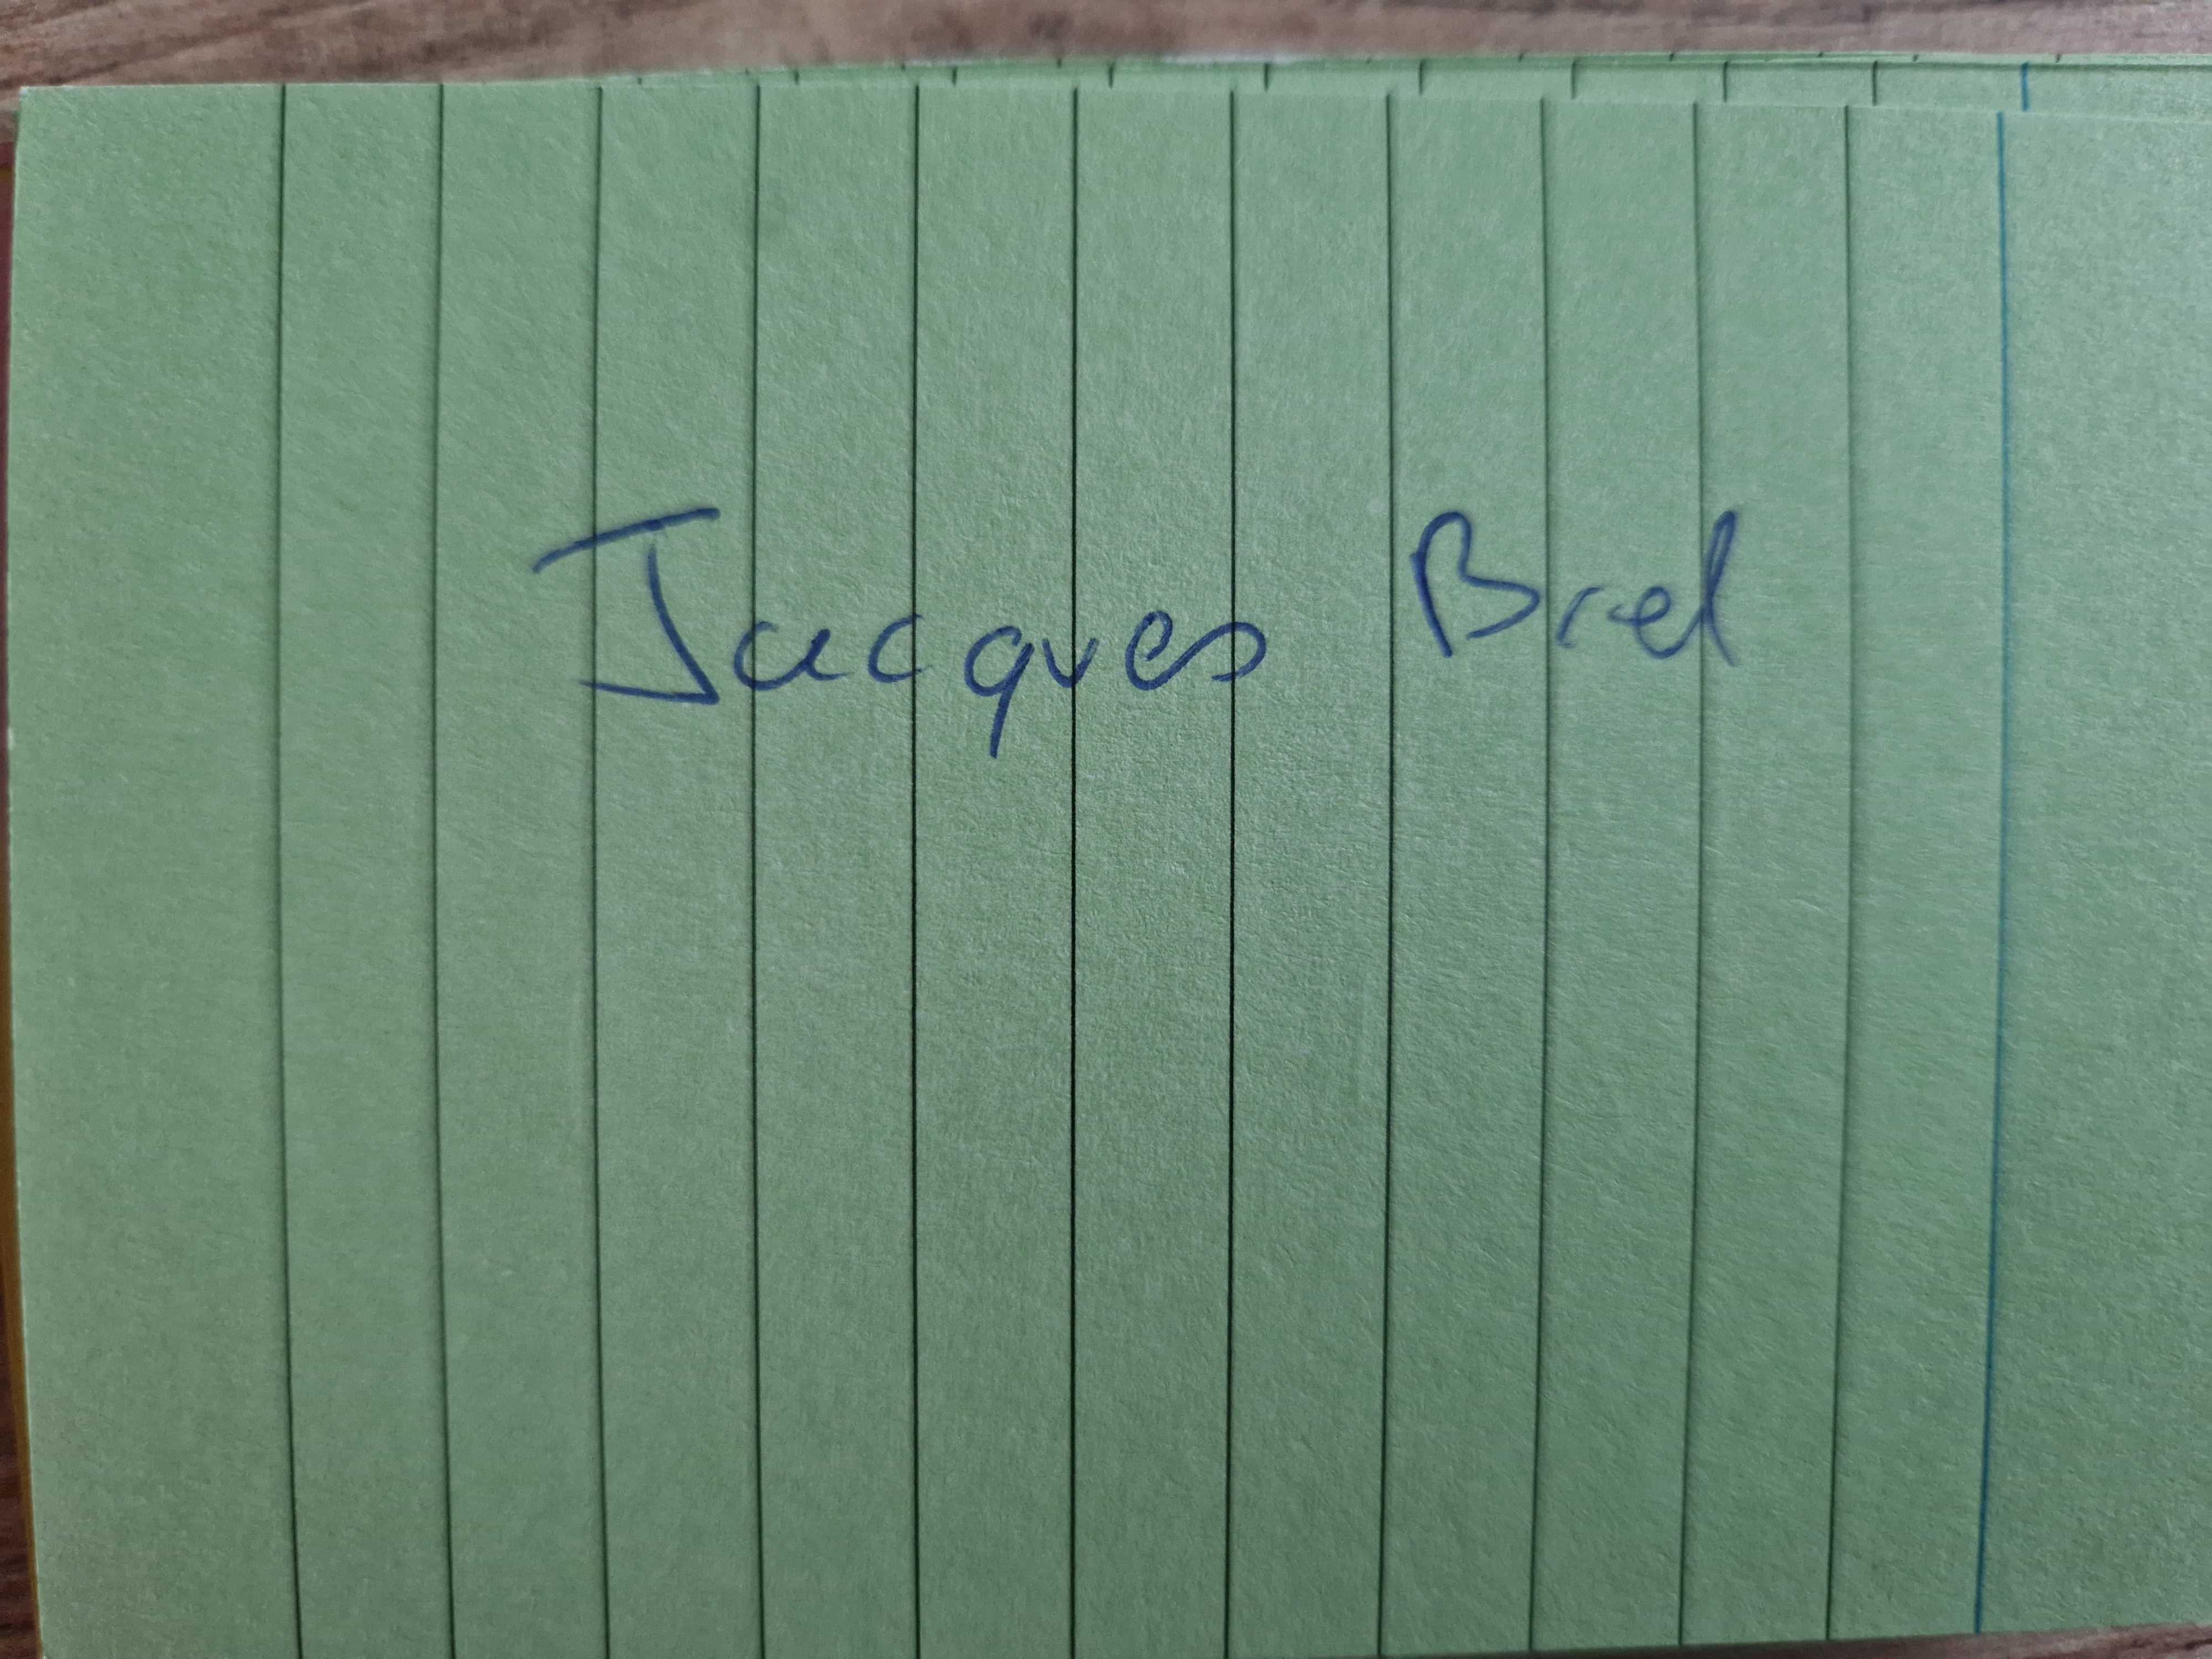 Jacques Brel